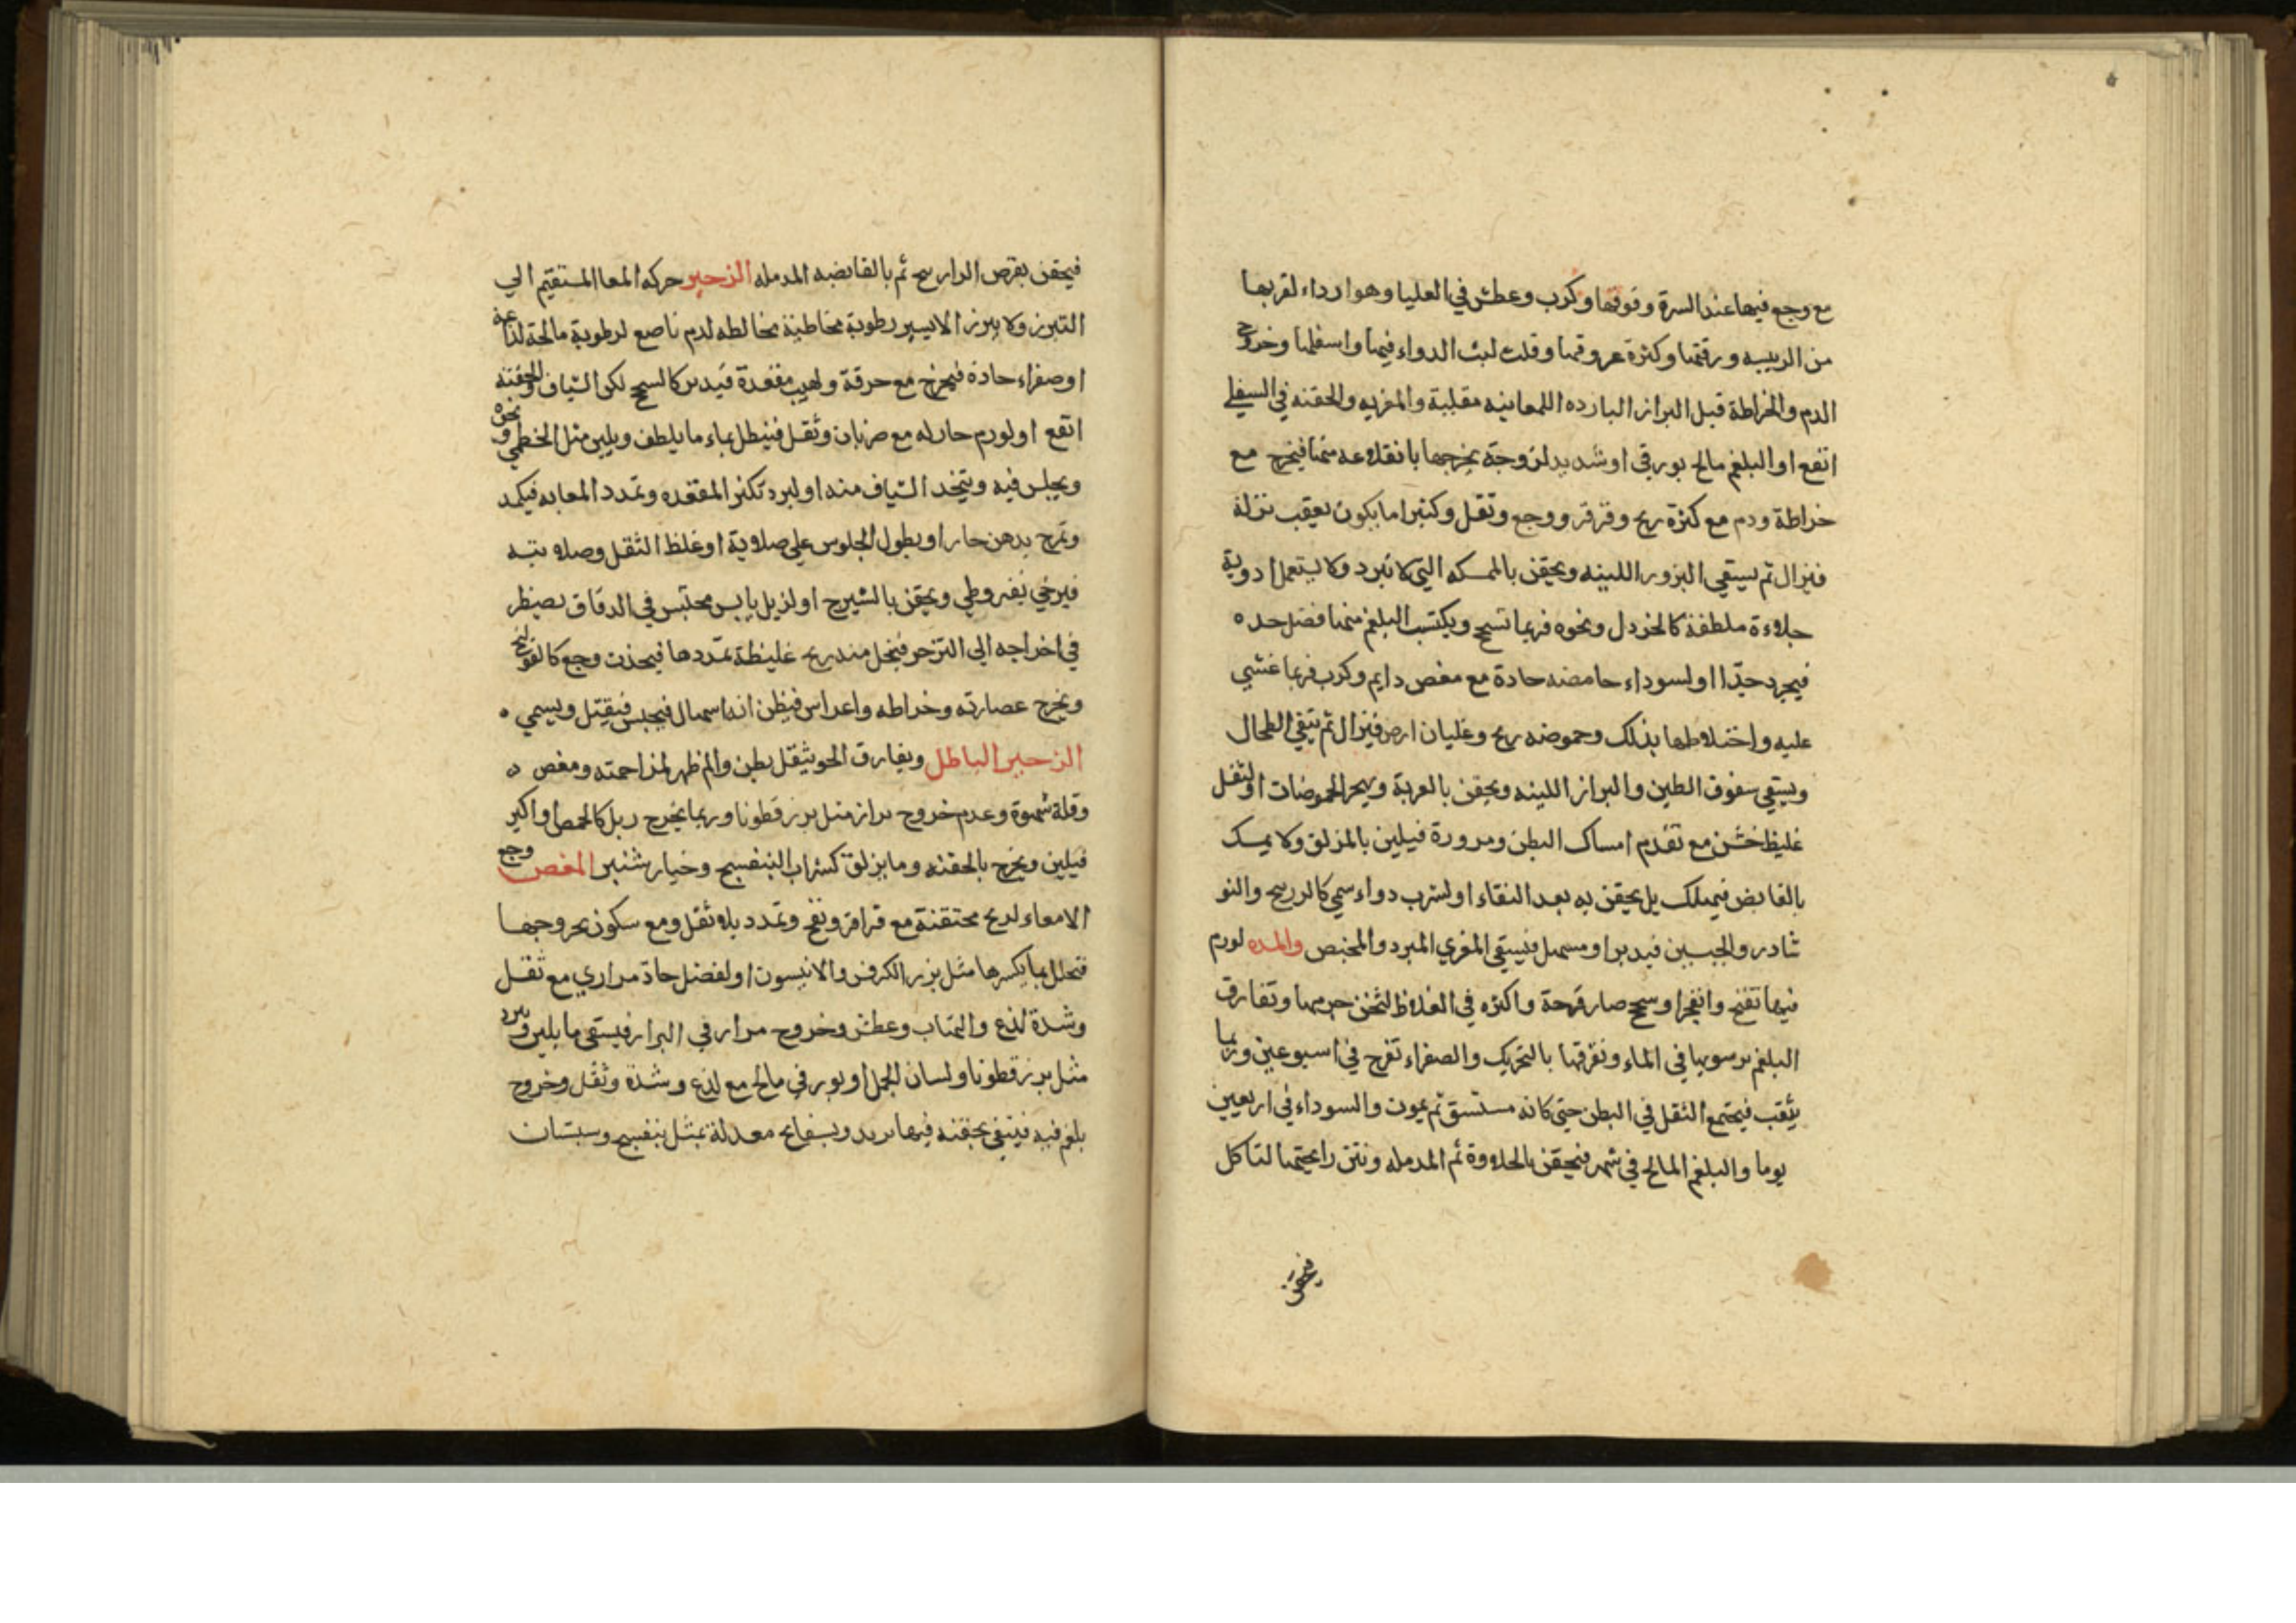 مع وجع فيها عند السرة وفوقها وكرب وعطش في العليا وهو ارداء لقربها
من الرييسه ورقتها وكثرة عروقها وقلت لبث الدواء فيها واسفلها وخروج
الدم والخراطة قبل البراز البارده اللعابيه مقلية والمغريه والحقنه في السفلي
انفع او البلغم مالح بورقي او شديد لزوجة يخرجها بانقلاعه منها فيخرج مع
خراطة ودم مع كثرة ريح وقرقر ووجع وثقل وكثيرا ما يكون بعقب نزلة
فيزال ثم يسقي البزور اللينه ويحقن بالممسكه التي لا تبرد ولا يستعمل ادوية
جلاءة ملطفة كالخردل ونحوه فربما تسحج ويكتسب البلغم منها فضل حده
فيجرد حيدا او لسوداء حامضه حادة مع مغص دايم وكرب فربما غشي
عليه واختلاطها بذلك وحموضه ريح وغليان ارض فيزال ثم ينقي الطحال
ويسقي سفوق الطين والبراز اللينه ويحقن بالغرية ويهجر الحموضات او لثفل
غليظ خشن مع تقدم امساك البطن ومرورة فيلين بالمزلق ولا يمسك
بالقابض فيهلك بل يحقن به بعد النقاء او لشرب دواء سمي كالزرنيح والنو
شادر والجبسين فيدبر او مسهل فيسقي المغري المبرد والمخبص والمده لورم
فيها تفتح وانفجر او سحج صار قرحة واكثره في الغلاظ لثخن جرمها وتفارق
البلغم برسوبها في الماء وتفرقها بالتحريك والصفراء تقرح في اسبوعين وربما
يثقب فيجتمع الثقل في البطن حتي كانه مستسق ثم يموت والسوداء في اربعين
يوما والبلغم المالح في شهر فيحقن بالجلاووة ثم المدمله ونتن رايحتها لتاكل
فيحقن
فيحقن بقرص الرازيح ثم بالقابضه المدمله الزحير حركه المعا المستقيم الي
التبرز ولا يبرز الا يسير رطوبة مخاطية تخالطه لدم ناصع لرطوبة مالحة لذاعة
او صفراء حادة فيخرج مع حرقة ولهيب مقعدة فيدبر كالسحج لكن الشياف والحقنه
انفع او لورم حار له مع ضربان وثقل فينطل بماء ما يلطف ويلين مثل الخطمي ونحوه
ويجلس فيه ويتخذ الشياف منه او لبرد تكثر المقعده وتمدد المعا به فيكمد
ويمرخ بدهن حار او بطول الجلوس علي صلاوية او غلظ الثقل وصلابته
فيرخي بقيروطي ويحقن بالشيرج او لزبل يابس محتبس في الدقاق يضطر
في اخراجه الي التزحر فينحل منه ريح غليظة تمددها فيحدث وجع كالقولنج
ويخرج عصارته وخراطه واعراس فيظن انه اسهال فيحبس فيقتل ويسمي
الزحير الباطل ويفارق الحق بثقل بطن والم ظهر لمزاحمته ومغص
وقلة شهوة وعدم خروج براز مثل بزر قطونا وربما يخرج زبل كالحمص او اكبر
فيلين ويخرج بالحقنه وما يزلق كشراب البنفسج وخيار شنبر المغص وجع
الامعاء لريح محتقنة مع قراقر ونفخ وتمدد بلا ثقل ومع سكون بخروجها
فتحلل بما يكسرها مثل بزر الكرفس والانيسون او لفضل حاد مراري مع ثقل
وشدة لذع والتهاب وعطش وخروج مرار في البراز فيسقي ما يلين ويبرد
مثل بزر قطونا ولسان الحمل او بورقي مالح مع لذع وشدة وثقل وخروج
بلغم فيه فينقي بحقنه فيها تربد وبسفايج معدلة بمثل بنفسج وسبستان